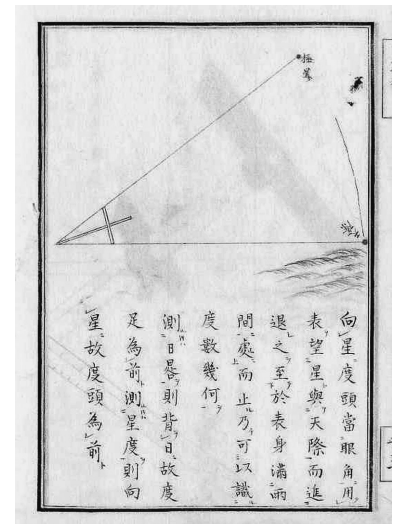 極星
向星度頭當眼角用
表望星與天際而進
退之至於表身滿兩
間處而止乃可以識
度數幾何
測日晷則背日故度
足為前測星度則向
星故度頭為前